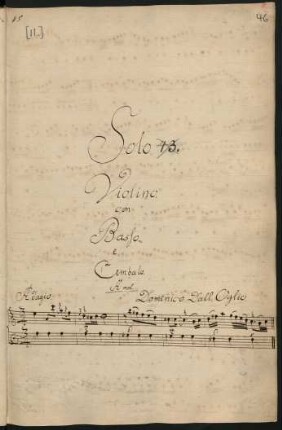 15 46
[11.]
Solo 13.
Violino
con
Basso
e
Cembalo
Domenico Dall. Oglio
Adagio